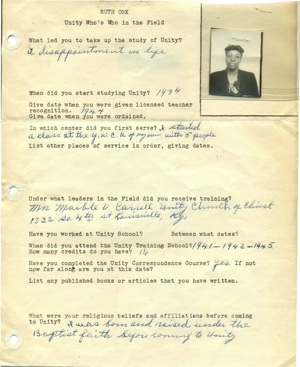 RUTH COX
Unity Who's Who in the Field
What led you to take up the study of Unity?
A disappointment in life
When did you start studying Unity? 1934
Give date when you were given licensed teacher
recognition. 1944
Give date when you were ordained.
In which center did you first serve? I started
a class at the Y.W.C.A. of my own with 5 people
List other places of service in order, giving dates.
Under what leaders in the Field did you receive training?
Mrs Marble V. Carrell Unity Church of Christ
1322 So. 4th st Louisville, Ky.
Have you worked at Unity School? Between what dates?
When did you attend the Unity Training School? 1941-1942-1945
How many credits do you have? 16
Have you completed the Unity Correspondence Course? yes If not
how far along are you at this date?
List any published books or articles that you have written.
What were your religious beliefs and affiliations before coming
to Unity? I was born and raised under the
Baptist faith before coming to Unity